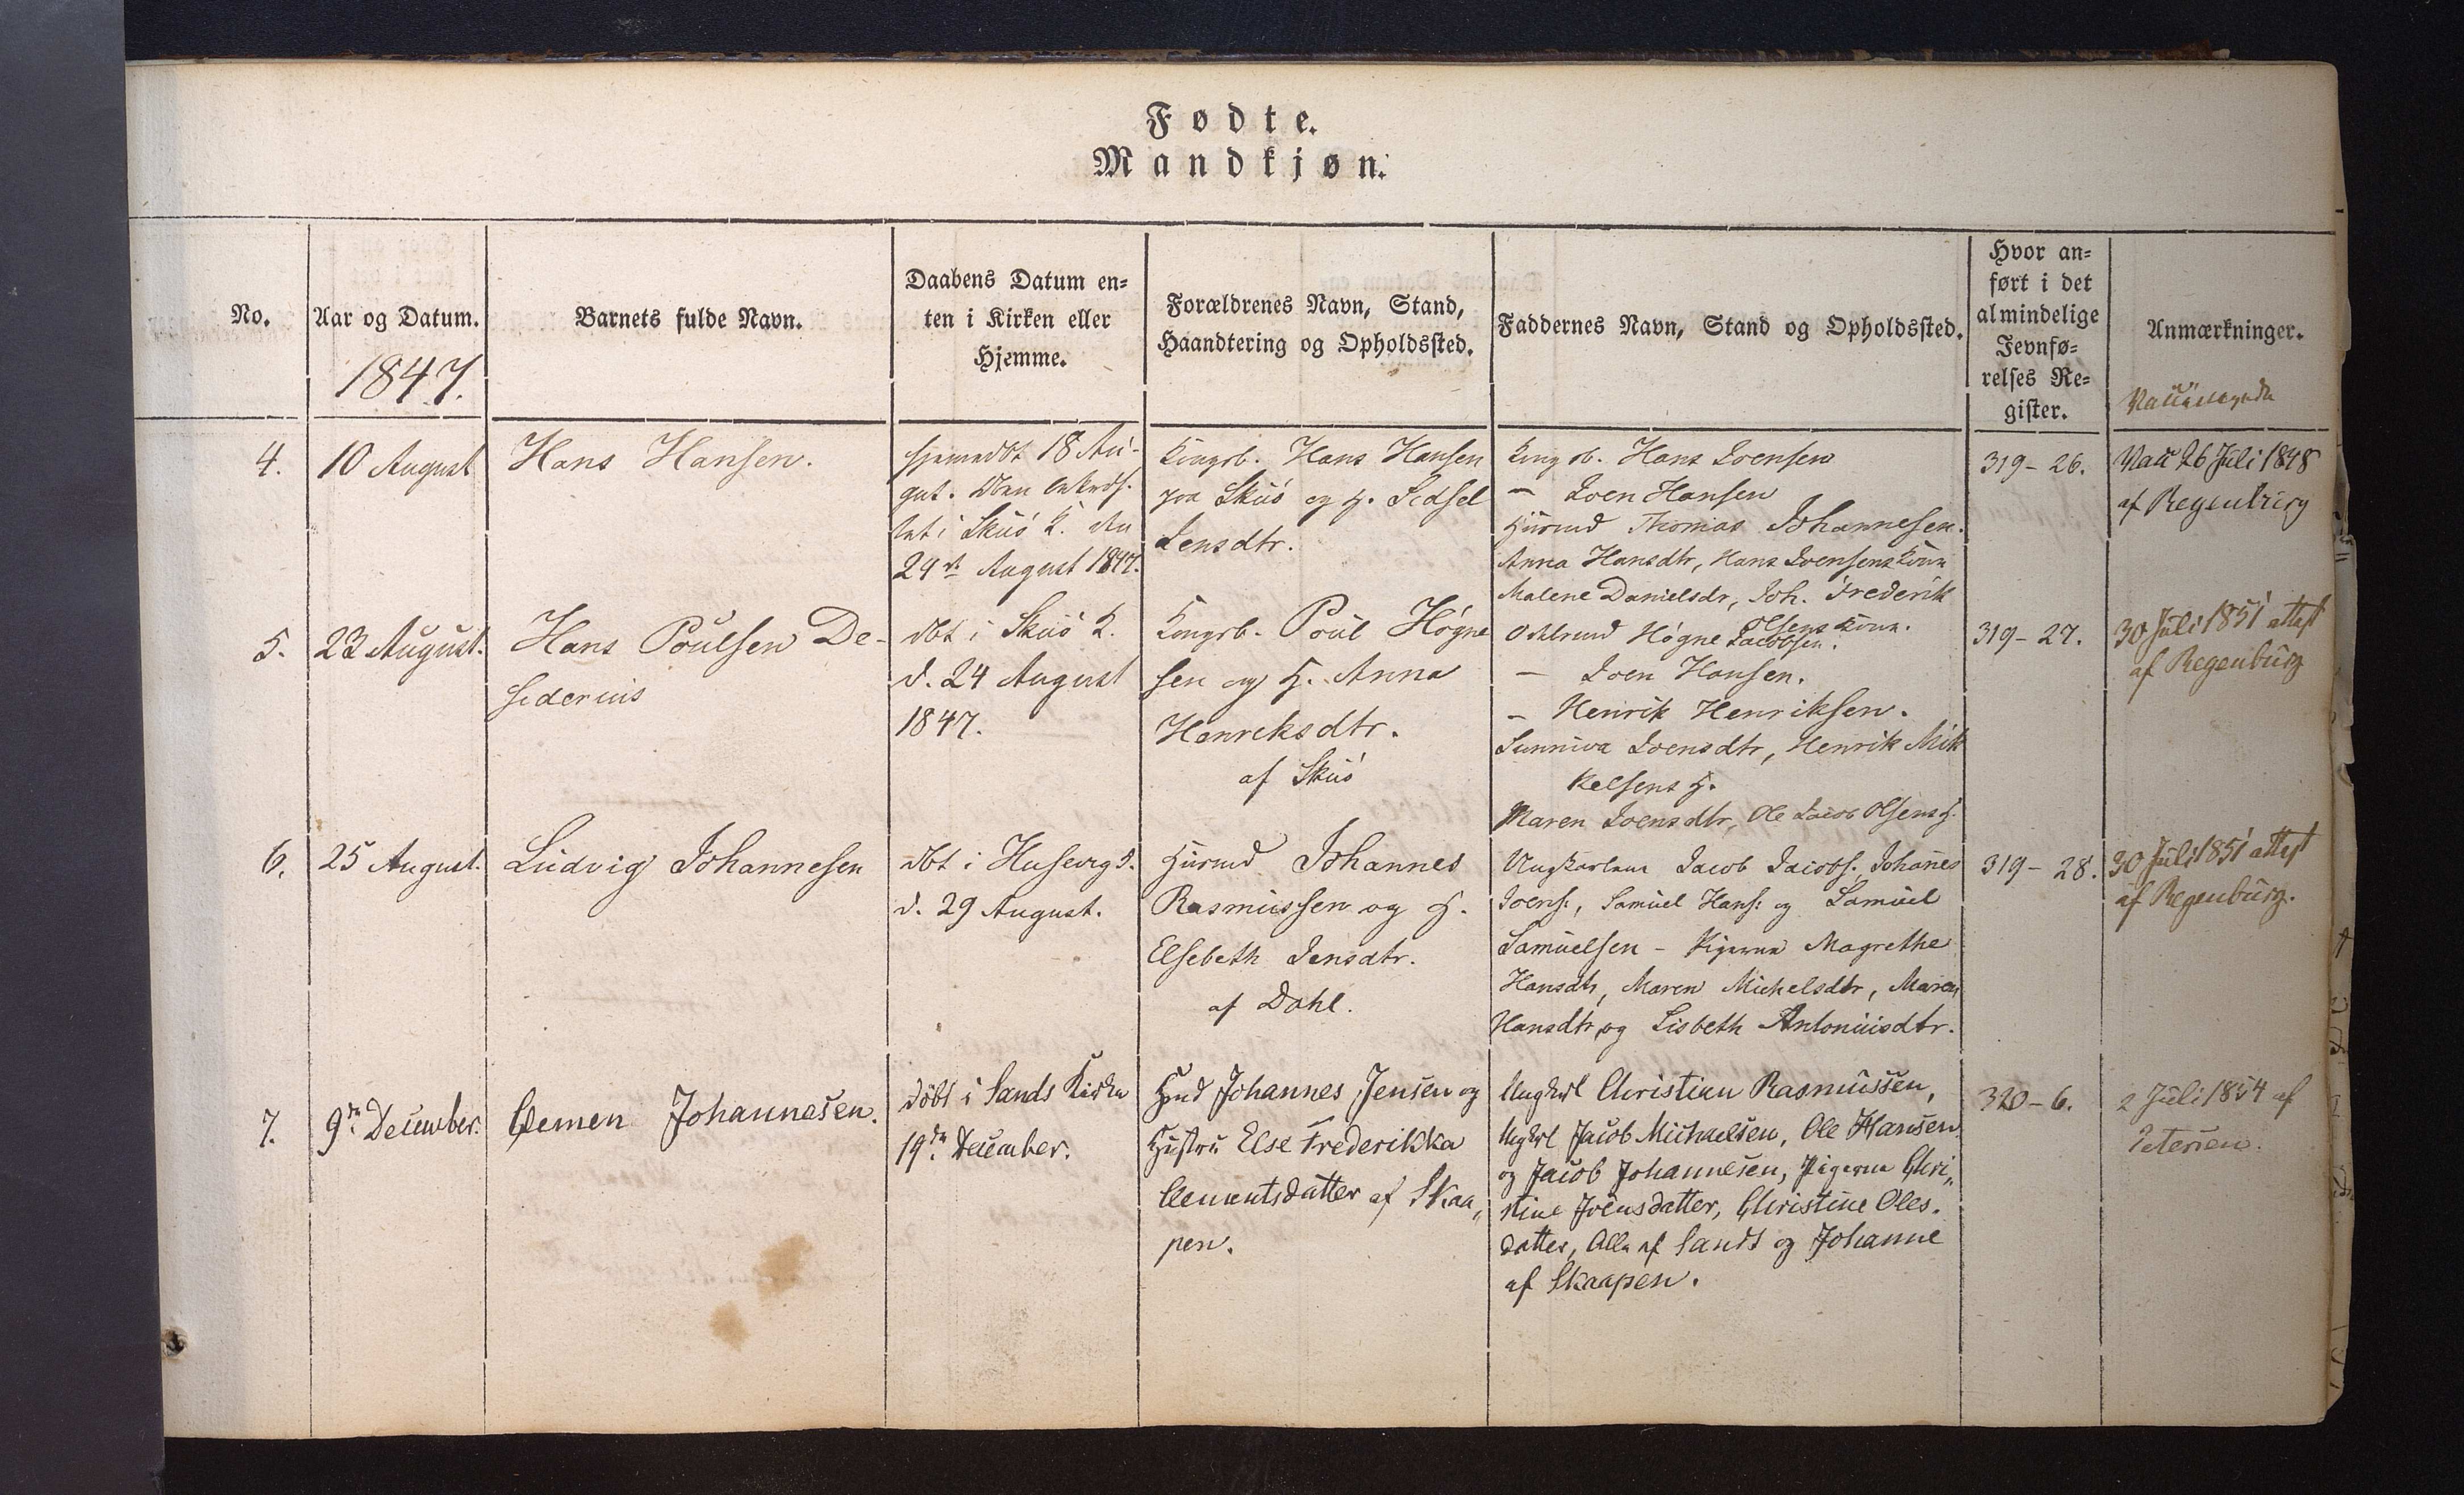 Fødte.
Mandkjøn.
No.
Aar og Datum.
1847.
Barnets fulde Navn.
Daabens Datum en=
ten i Kirken eller
Hjemme.
Forældrenes Navn, Stand,
Haandtering og Opholdssted.
Faddernes Navn, Stand og Opholdssted.
Hvor an=
ført i det
almindelige
Jevnfø=
relses Re=
gister.
Anmærkninger.
4.
10 August
Hans Hansen.
hjemmedbt 18 Au-
gust. Dben
i Skuö K. den
24de August 1847.
Kongsb. Hans Hansen
paa Skuö og H. Sidsel
Jensdtr.
Kongsb. Hans Joensen
— Joen Hansen
Huusmd Thomas Johannesen.
Anna Hansdtr, Hans Joensens Kone
Malene Danielsdr, Joh. Frederik
Olsens Kone.
319-26.
Vacc 26 Juli 1848
af Regenburg
5.
23 August.
Hans Poulsen De-
siderius
dbt i Skuö K.
d. 24 August
1847.
Kongsb. Poul Högne
sen og H. Anna
Henreksdtr.
af Skuö
Odelsmd Högne Jacobsen.
— Joen Hansen.
— Henrik Henriksen.
Sunniva Joensdtr, Henrik Mik
kelsens H.
Maren Joensdtr, Ole Jacob Olsens H.
319-27.
30 Juli 1851 attest
af Regenburg
6.
25 August.
Ludvig Johannesen
dbt i Husevig K.
d. 29 August.
Huusmd Johannes
Rasmussen og H.
Elsebeth Jensdtr.
af Dahl.
Ungkarlene Jacob Jacobs. Johanes
Joens:, Samuel Hans: og Samuel
Samuelsen - Pigerne Magrethe
Hansdtr, Maren Michelsdtr, Maren
Hansdtr, og Lisbeth Antoniusdtr.
319-28.
30 Juli 1851 attest
af Regenburg.
7.
9de December.
Clemen Johannesen.
döbt i Sands Kirke
19de December.
Hmd Johannes Jensen og
Hustru Else Frederikka
Clementsdatter af Skaa„
pen.
Ungkrl Christian Rasmussen,
Ungkrl Jacob Michaelsen, Ole Hansen
og Jacob Johannesen, Pigerne Chri„
stine Joensdatter, Christine Oles.
datter, Alle af Sands og Johanne
af Skaapen.
320-6.
2 Juli 1854 af
Petersen.